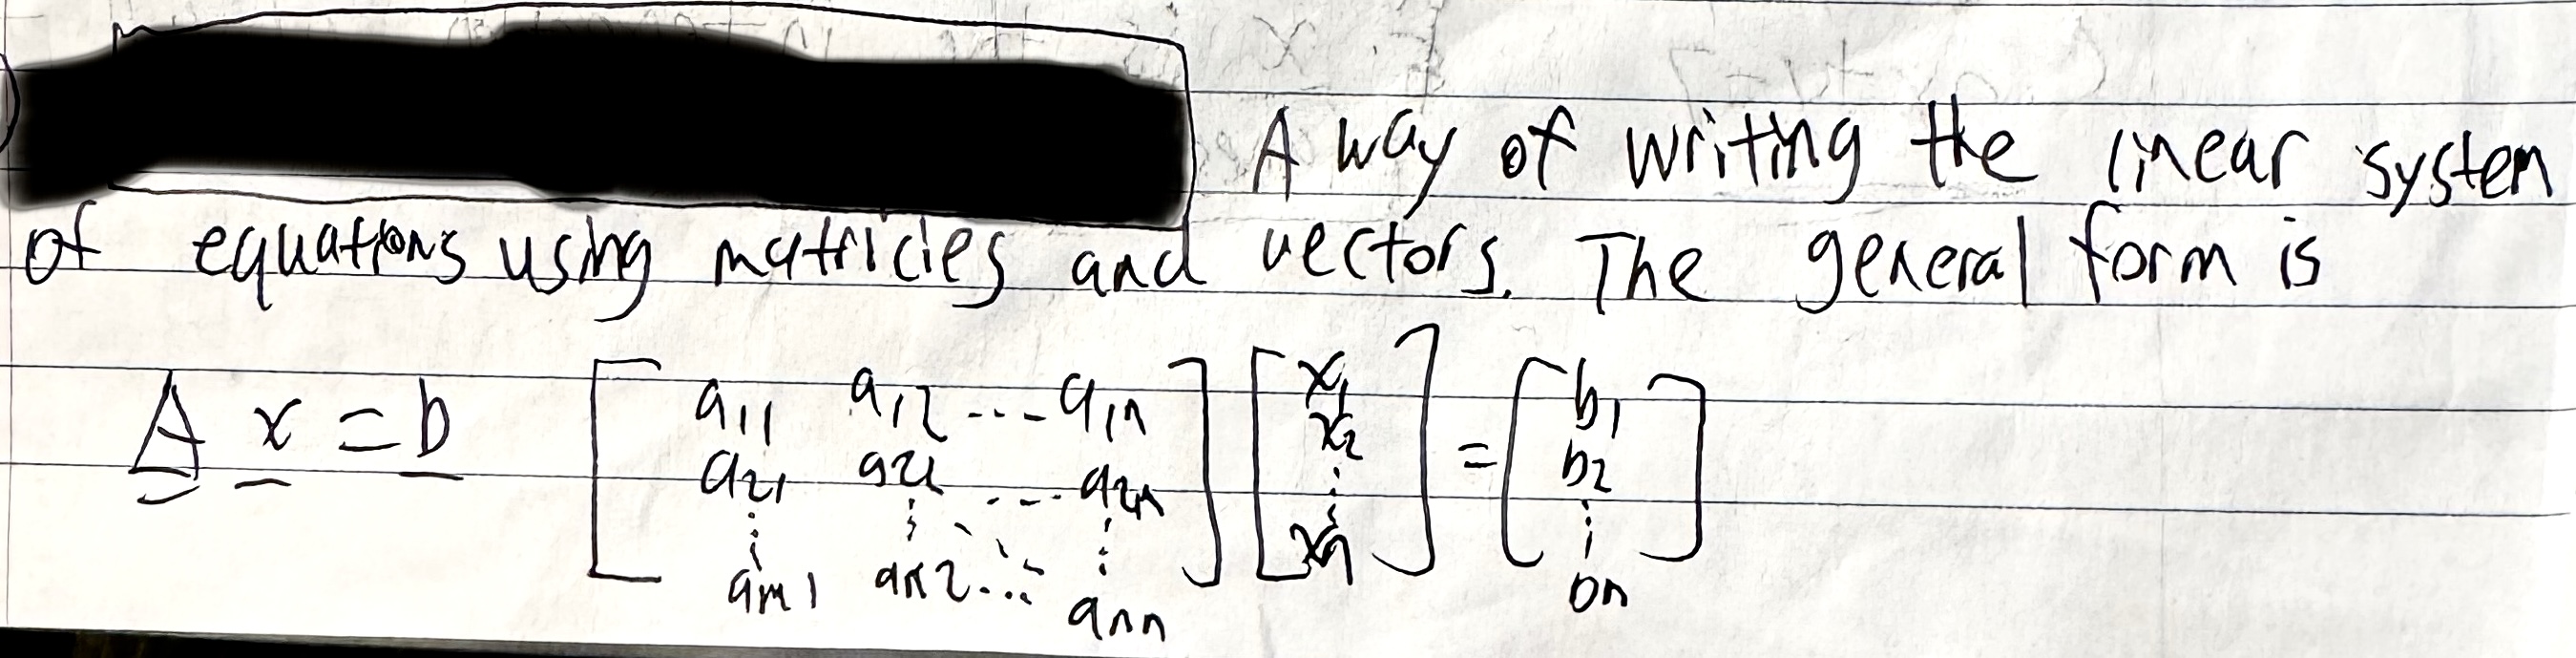 A way of writing the linear system
of equations using matricies and vectors. The general form is
A x = b [ a11 a12 --- a1n ] [ x1 ] = [ b1 ]
a21 a22 --- a2n x2 b2
⋮ ⋮ ⋱ ⋮ ⋮ ⋮
am1 an2 ... ann xn bn